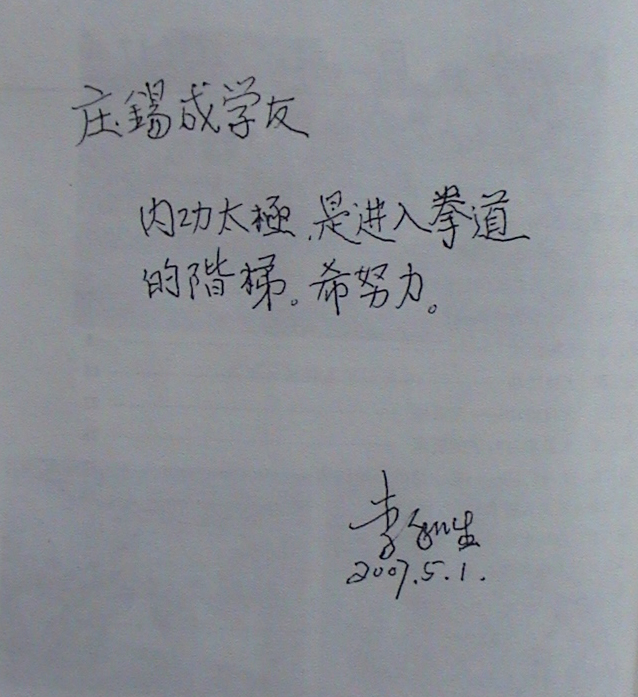 庄錫成学友
内功太極,是进入拳道
的階梯。希努力。
李和生
2007.5.1.